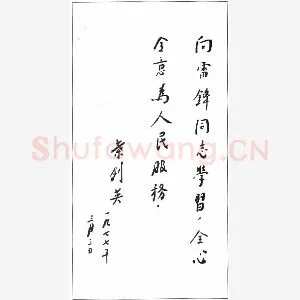 向雷鋒同志學習，全心
全意為人民服務。
葉剑英
一九七七年
三月二日
Shufawang.CN